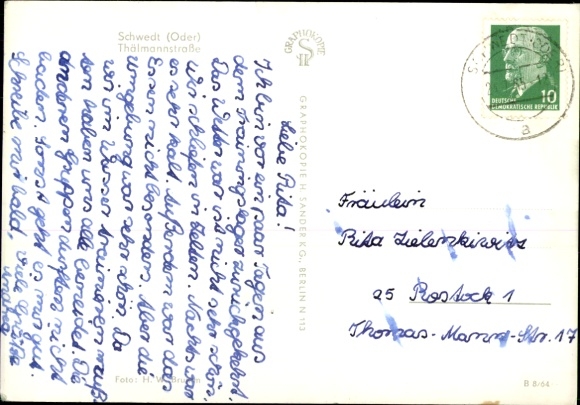 Schwedt (Oder)
Thälmannstraße
GRAPHOKOPIE
Liebe Rita!
Ich bin vor ein paar Tagen aus
dem Trainingslager zurückgekehrt.
Das Wetter war nicht sehr schön.
Wir schliefen in Zelten. Nachts war
es sehr kalt. Außerdem war das
Essen nicht besonders. Aber die
Umgebung war sehr schön. Da
wir im Wasser trainieren muß-
ten haben uns alle beneidet. Die
anderen Gruppen durften nicht
baden. Sonst geht es mir gut.
Schreibe mir bald, viele Grüße
GRAPHOKOPIE H. SANDER K.G., BERLIN N 113
SCHWEDT (ODER)
a
10
DEUTSCHE
DEMOKRATISCHE REPUBLIK
Fräulein
Rita
25 Rostock 1
Thomas-Mann-Str. 17
Foto: H.
B 8/64